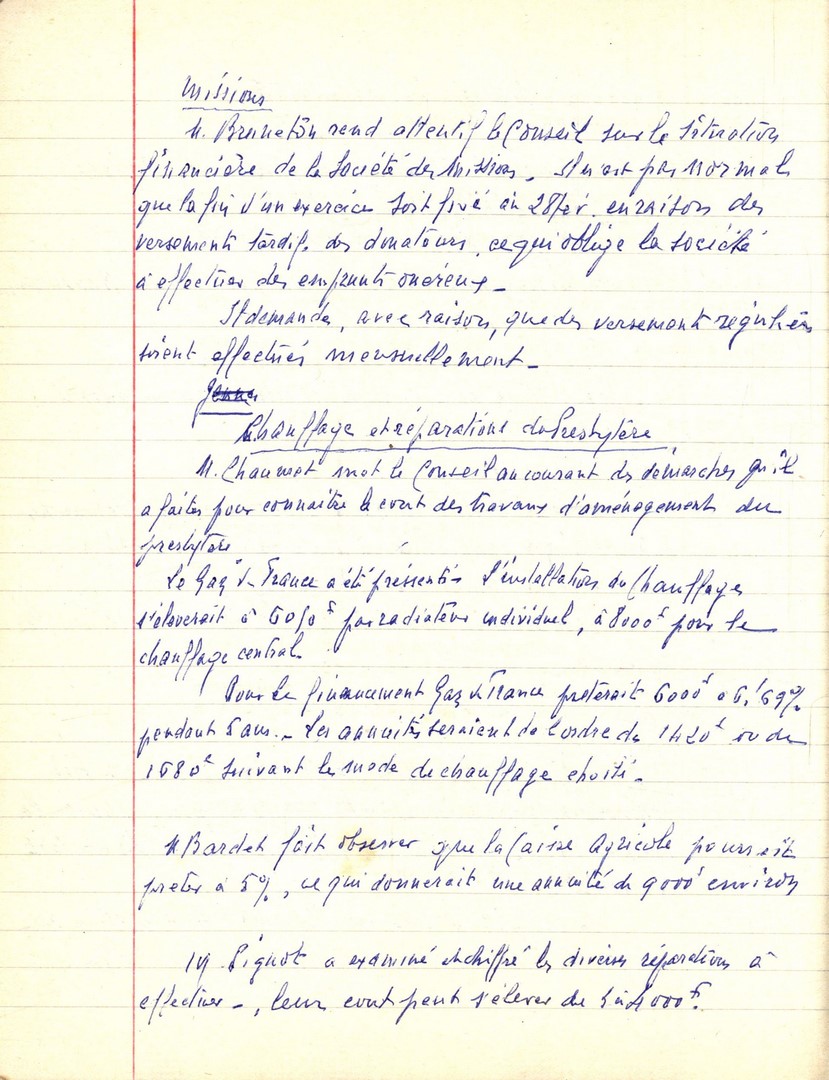 Missions
M. Bruneton rend attentif le Conseil sur la situation
financière de la Société des Missions. Il n'est pas normal
que la fin d'un exercice soit fixé au 28 fév. en raison des
versements tardifs des donateurs, ce qui oblige la société
à effectuer des emprunts onéreux -
Il demande, avec raison, que des versements réguliers
soient effectués mensuellement -
Chauffage et réparations du Presbytère
M. Chaumet met le Conseil au courant des démarches qu'il
a faites pour connaître le cout des travaux d'aménagement du
presbytère
Le Gaz de France a été pressenti - L'installation du Chauffage
s'élèverait à 6050 F par radiateur individuel, à 8000 F pour le
chauffage central.
Pour le financement Gaz de France prêterait 6000 F à 6,69%
pendant 5 ans. - Les annuités seraient de l'ordre de 1420 F ou de
1680 F suivant le mode de chauffage choisi -
M Bardet fait observer que la Caisse Agricole pourrait
prêter à 5%, ce qui donnerait une annuité de 900 F environ
M. Pignot a examiné et chiffré les diverses réparations à
effectuer -, leur cout peut s'élever de à 4000 F.